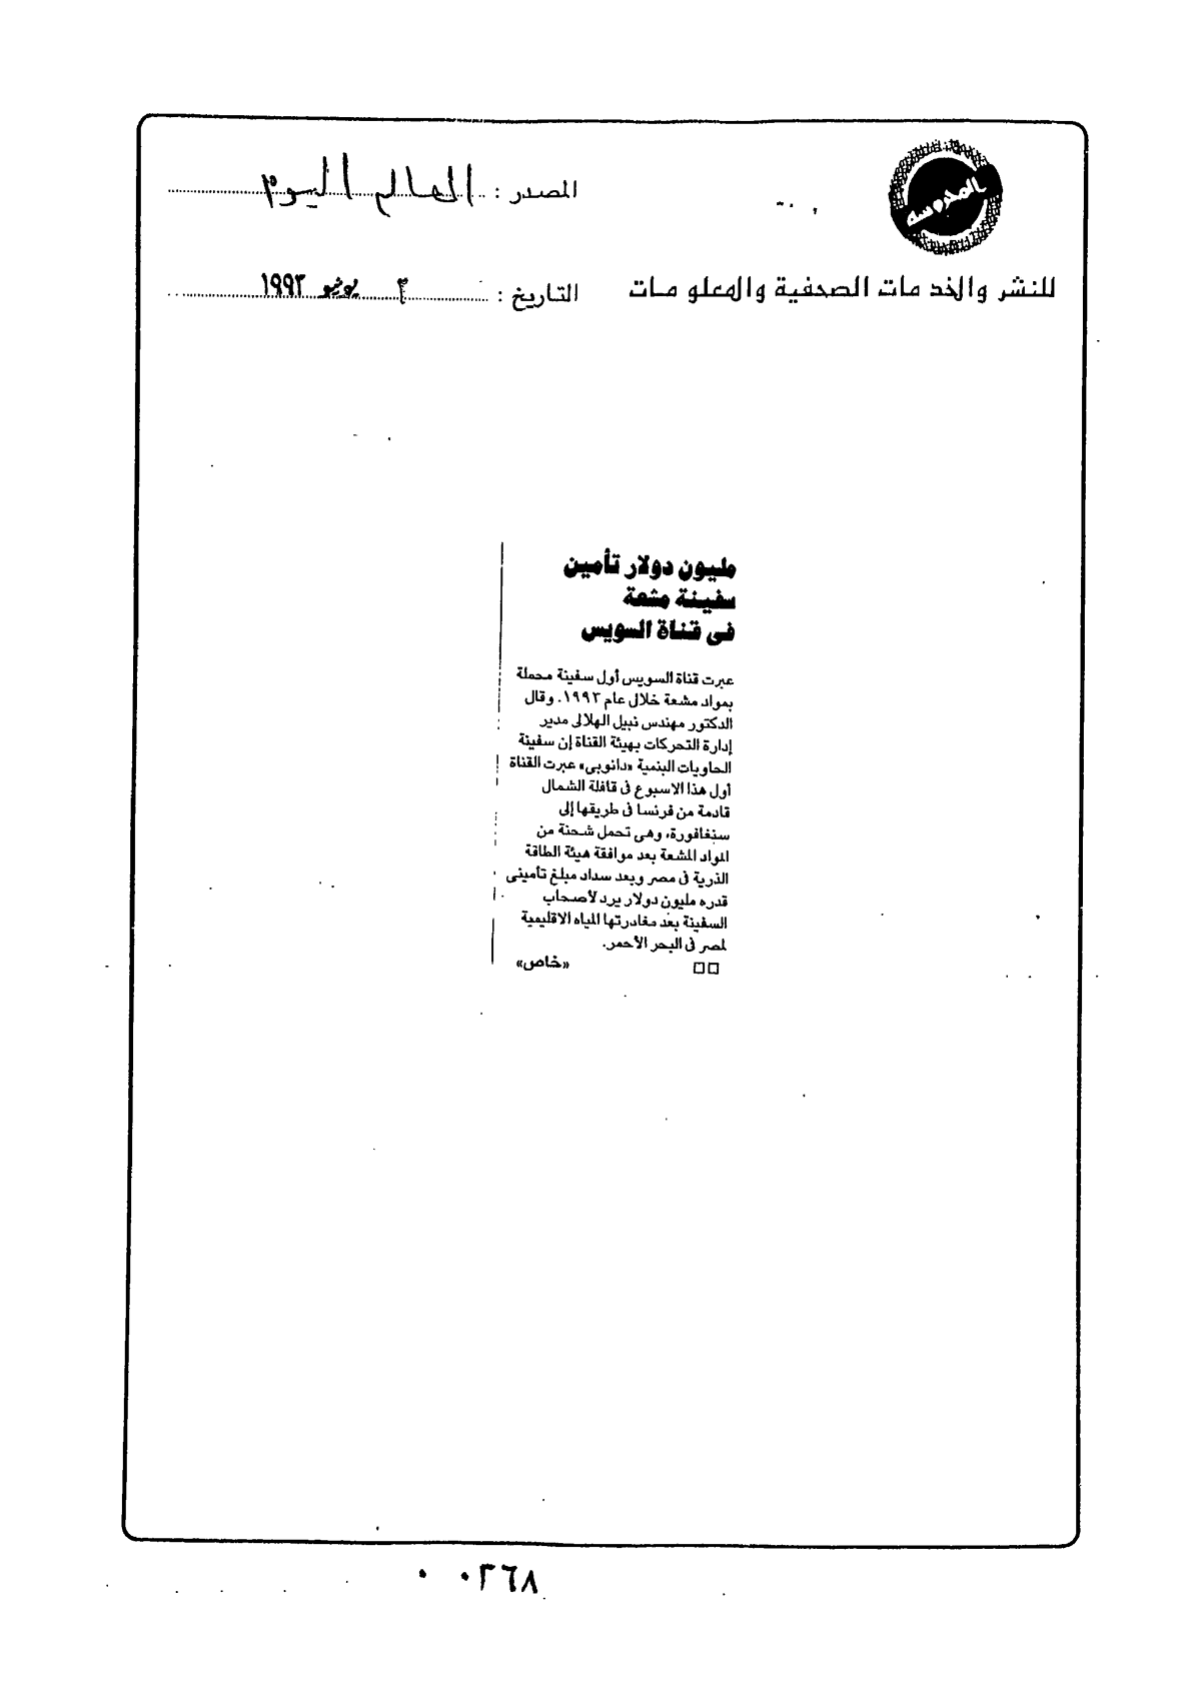 المحروسة
المصدر : العالم اليوم
للنشر والخدمات الصحفية والمعلومات
التاريخ : ٣ يونيو ١٩٩٣
مليون دولار تأمين
سفينة مشعة
فى قناة السويس
عبرت قناة السويس أول سفينة محملة
بمواد مشعة خلال عام ١٩٩٣. وقال
الدكتور مهندس نبيل الهلالى مدير
إدارة التحركات بهيئة القناة إن سفينة
الحاويات البنمية «دانوبى» عبرت القناة
أول هذا الاسبوع فى قافلة الشمال
قادمة من فرنسا فى طريقها إلى
سنغافورة، وهى تحمل شحنة من
المواد المشعة بعد موافقة هيئة الطاقة
الذرية فى مصر وبعد سداد مبلغ تأمينى
قدره مليون دولار يرد لأصحاب
السفينة بعد مغادرتها المياه الاقليمية
لمصر فى البحر الأحمر.
□□ «خاص»
٠٠٣٦٨